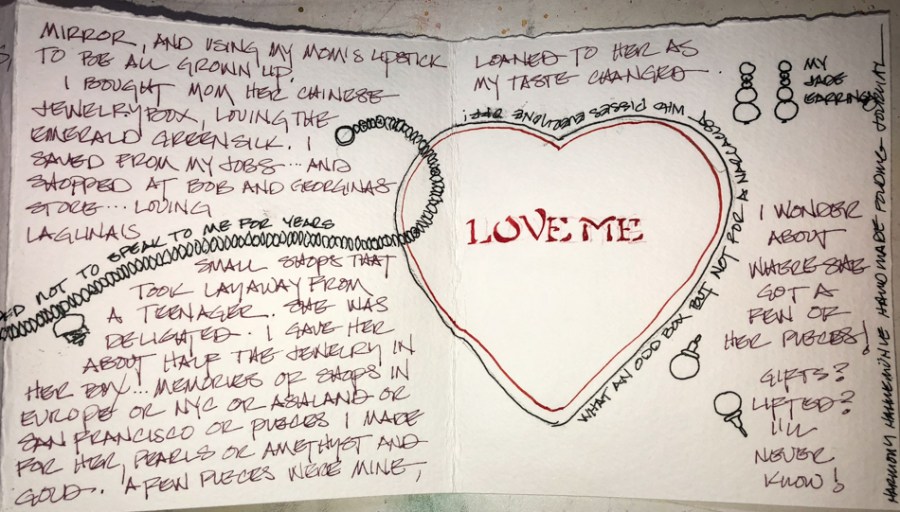 MIRROR, AND USING MY MOM'S LIPSTICK
TO BE ALL GROWN UP.
I BOUGHT MOM HER CHINESE
JEWELRY BOX, LOVING THE
EMERALD GREEN SILK. I
SAVED FROM MY JOBS... AND
SHOPPED AT BOB AND GEORGINAS
STORE... LOVING
LAGUNA'S
NOT TO SPEAK TO ME FOR YEARS
SMALL SHOPS THAT
TOOK LAYAWAY FROM
A TEENAGER. SHE WAS
DELIGHTED. I GAVE HER
ABOUT HALF THE JEWELRY IN
HER BOX!.. MEMORIES OF SHOPS IN
EUROPE OR NYC OR ASHLAND OR
SAN FRANCISCO OR PIECES I MADE
FOR HER, PEARLS OR AMETHYST AND
GOLD. A FEW PIECES WERE MINE,
LOANED TO HER AS
MY TASTE CHANGED.
MY
JADE
EARRINGS
LOVE ME
WHAT AN ODD BOX BUT NOT FOR A NARCISSIST
WHO PISSES EVERYONE OFF!
I WONDER
ABOUT
WHERE SHE
GOT A
FEW OF
HER PIECES!
GIFTS?
LIFTED?
I'LL
NEVER
KNOW!
HARMONY HAHNEMÜHLE HANDMADE FOLDING JOURNAL